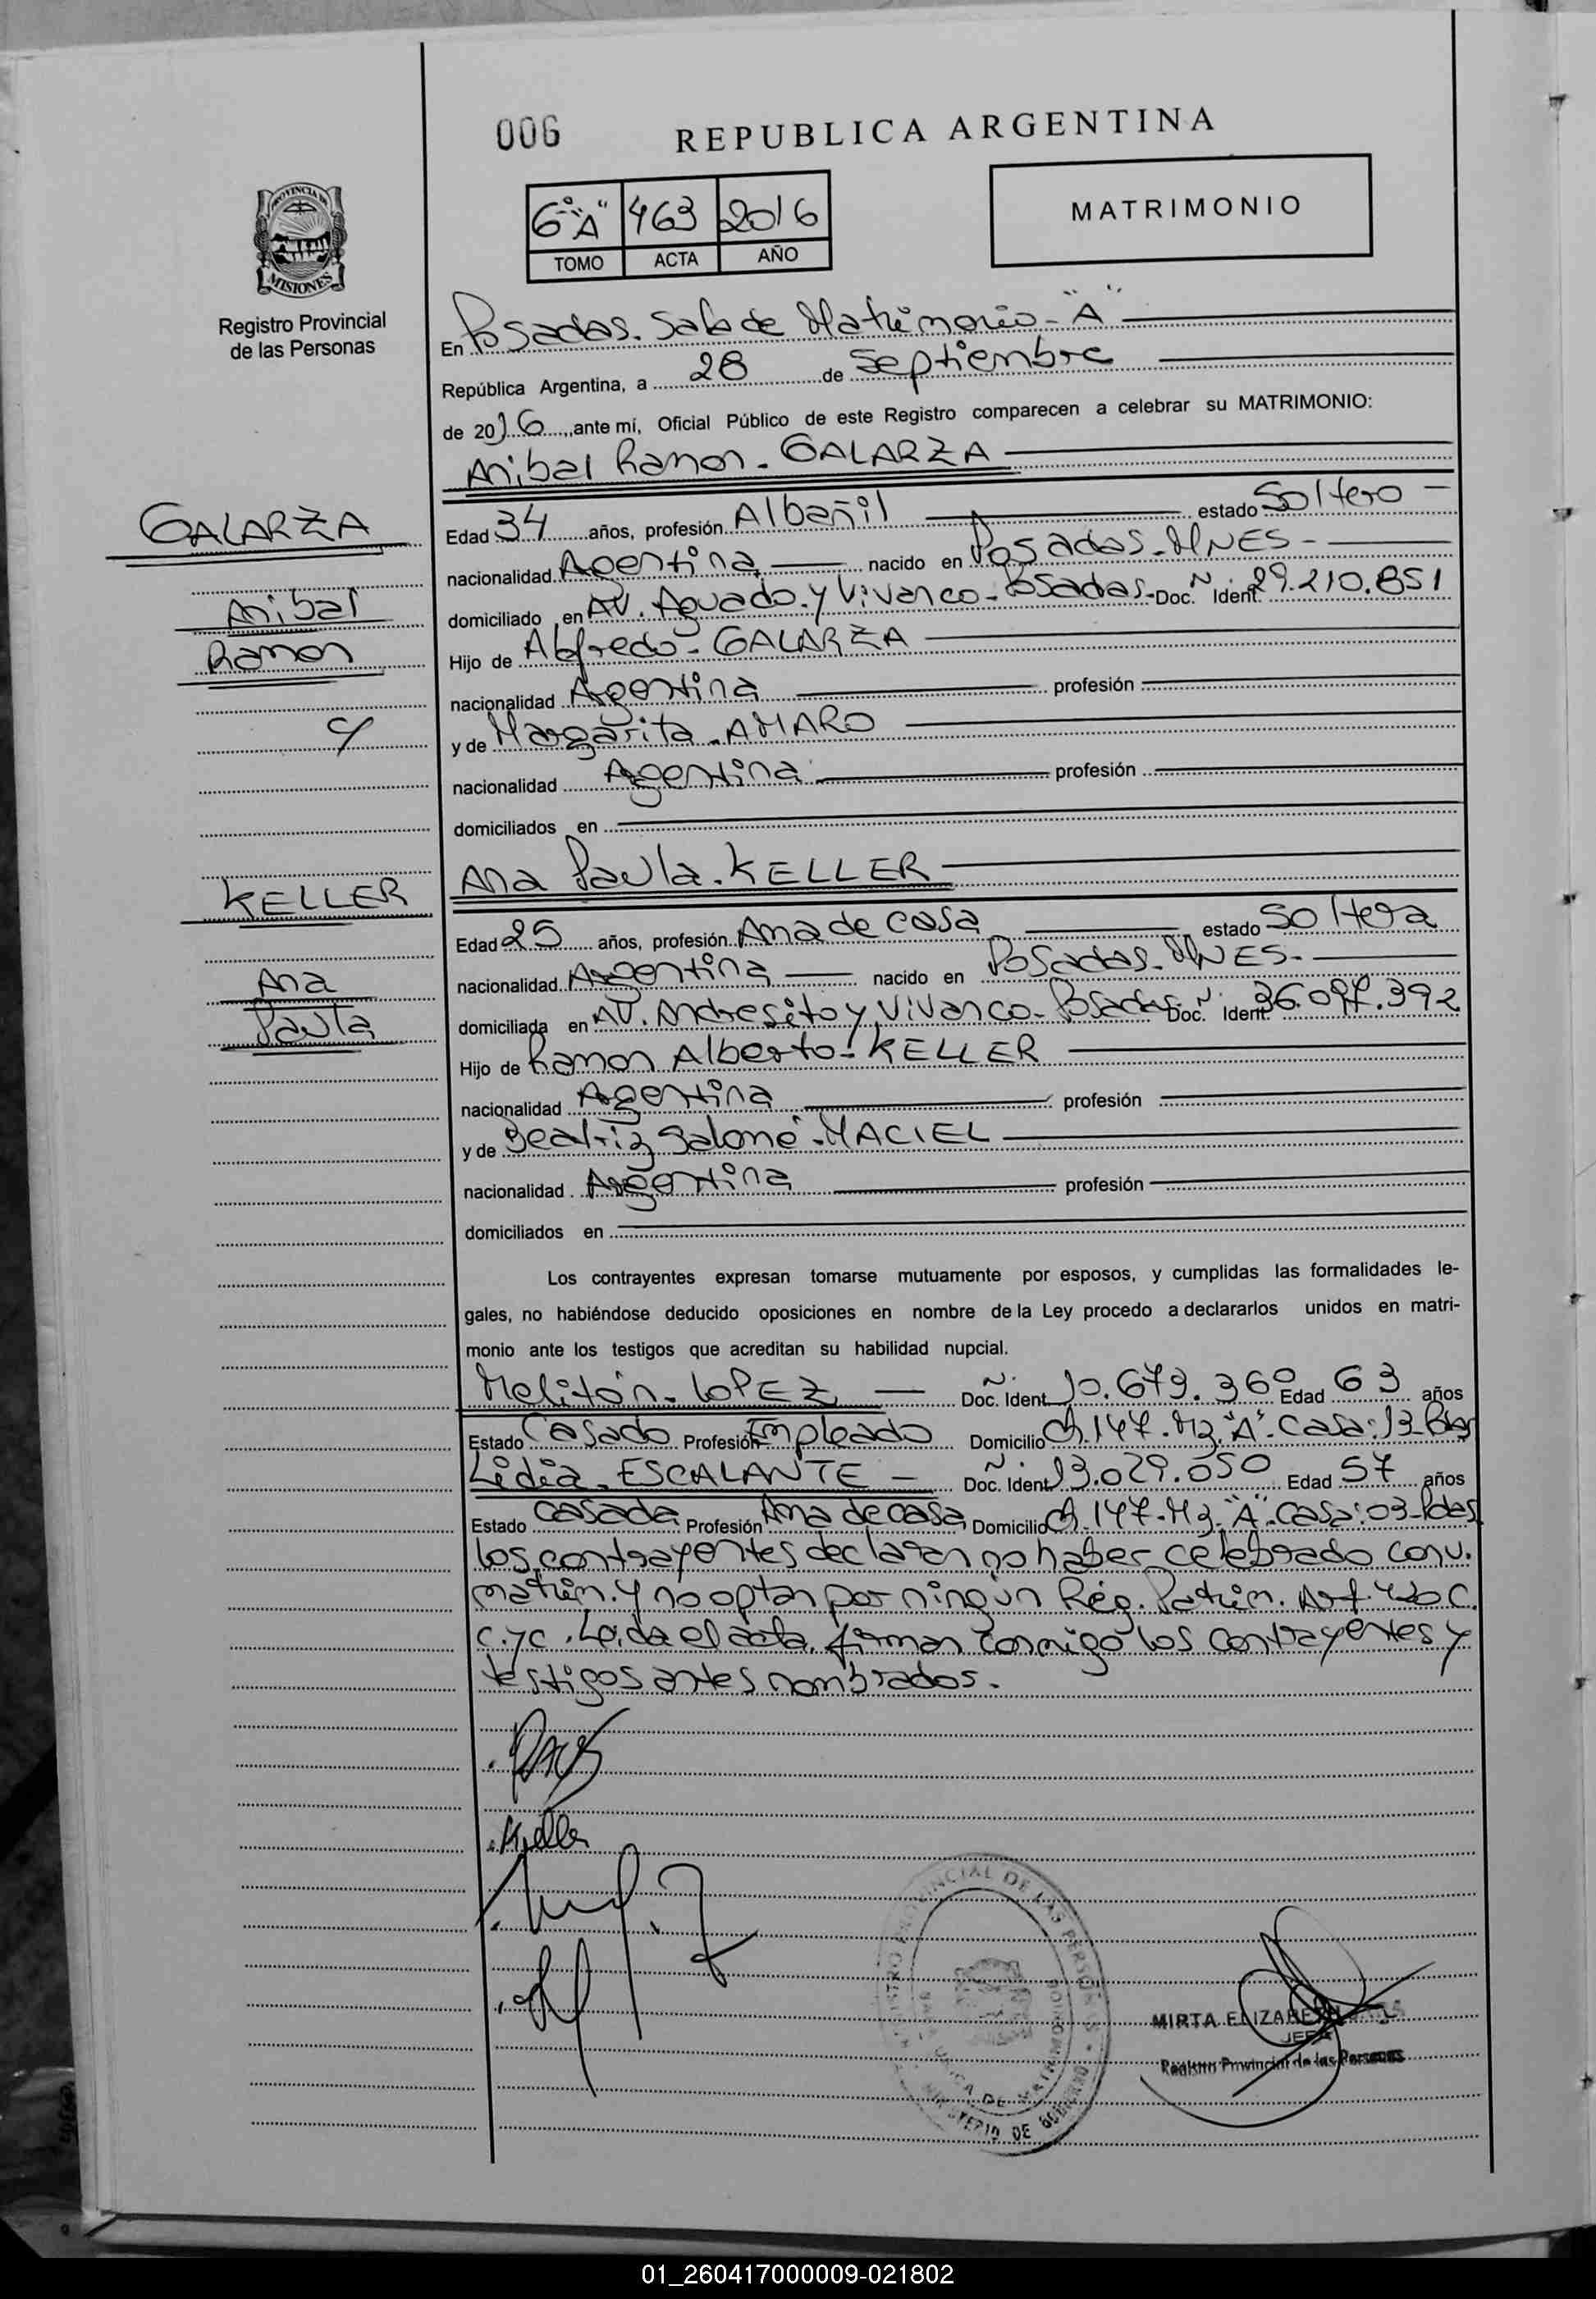 006
REPUBLICA ARGENTINA
6° "A" 463 2016
TOMO ACTA AÑO
MATRIMONIO
PROVINCIA DE
MISIONES
Registro Provincial
de las Personas
En Posadas. Sala de Matrimonio - "A"
República Argentina, a 28 de Septiembre
de 2016, ante mí, Oficial Público de este Registro comparecen a celebrar su MATRIMONIO:
Anibal Ramon - GALARZA
GALARZA
Anibal
Ramon
y
KELLER
Ana
Paula
Edad 34 años, profesión Albañil estado Soltero -
nacionalidad Argentina nacido en Posadas - MNES -
domiciliado en AV. Aguado y Vivanco - Posadas - Doc. N° Ident. 29.210.851
Hijo de Alfredo - GALARZA
nacionalidad Argentina profesión
y de Margarita - AMARO
nacionalidad Argentina profesión
domiciliados en
Ana Paula - KELLER
Edad 25 años, profesión Ama de casa estado Soltera
nacionalidad Argentina nacido en Posadas - MNES -
domiciliada en AV. Andresito y Vivanco - Posadas Doc. N° Ident. 36.097.392
Hijo de Ramon Alberto - KELLER
nacionalidad Argentina profesión
y de Beatriz Salomé - MACIEL
nacionalidad Argentina profesión
domiciliados en
Los contrayentes expresan tomarse mutuamente por esposos, y cumplidas las formalidades le-
gales, no habiéndose deducido oposiciones en nombre de la Ley procedo a declararlos unidos en matri-
monio ante los testigos que acreditan su habilidad nupcial.
Melitón - LOPEZ Doc. Ident. 10.679.360 Edad 63 años
Estado Casado Profesión Empleado Domicilio Ch. 147 - Mz. "A" - Casa: 13 - Pdas
Lidia - ESCALANTE - Doc. Ident. 13.029.050 Edad 57 años
Estado Casada Profesión Ama de casa Domicilio Ch. 147 - Mz. "A" - Casa: 03 - Pdas
los contrayentes declaran no haber celebrado conv.
matrim. y no optan por ningún Rég. Patrim. Art. 420 C.
C. y C. Leida el acta, firman conmigo los contrayentes y
testigos antes nombrados.
Keller
MIRTA ELIZABETH
JEFA
Registro Provincial de las Personas
01_260417000009-021802